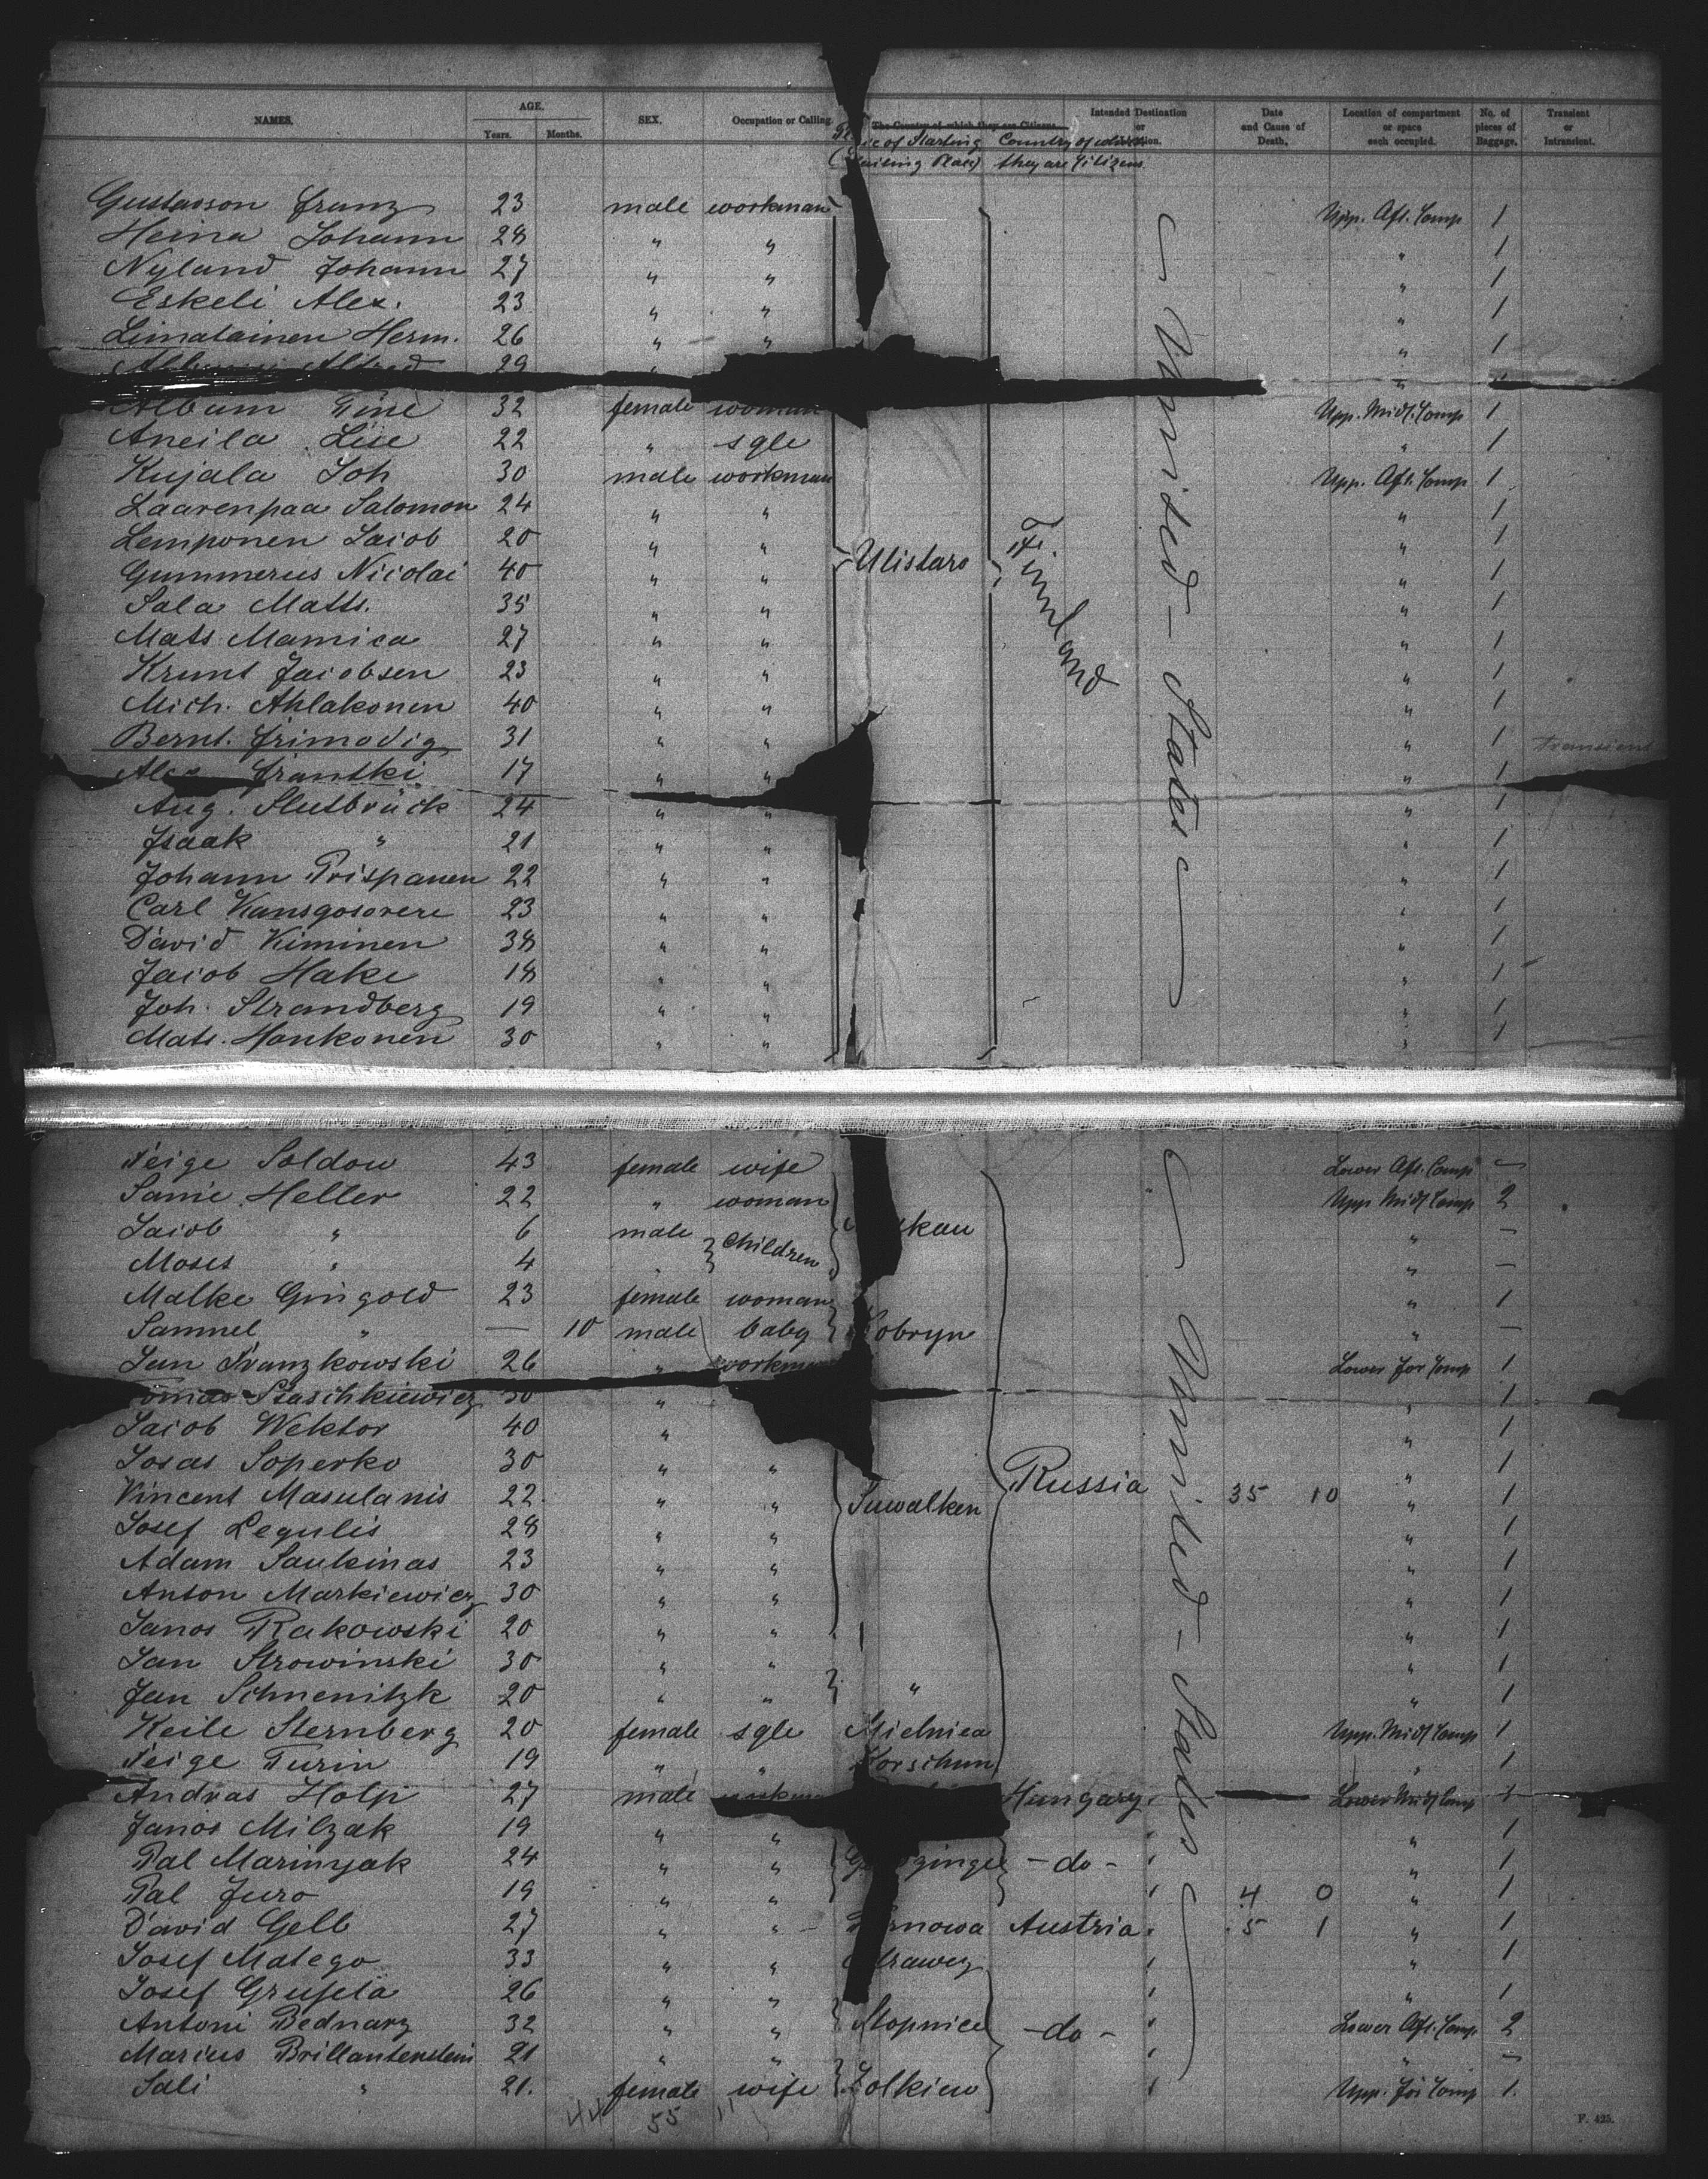 NAMES. AGE. Years. Months. SEX. Occupation or Calling. The Country of which they are Citizens. Intended Destination or Location. Date and Cause of Death. Location of compartment or space each occupied. No. of pieces of Baggage. Transient or Intransient.
of Starting Country of which
(Mailing Place) they are Citizens
Gustavson Franz 23 male workman Upp. Aft. Comp 1
Heina Johann 28 " " " 1
Nyland Johann 27 " " " 1
Eskeli Alex. 23 " " " 1
Limatainen Herm. 26 " " " 1
Alfred 29 "
Album Tine 32 female woman Upp. Midt. Comp 1
Aneila Lise 22 " sgle " 1
Kujala Joh 30 male workman Upp. Aft. Comp 1
Laarenpaa Salomon 24 " " " 1
Lemponen Jacob 20 " " " 1
Gummerus Nicolai 40 " " Ulistaro Finnland United-States " 1
Sala Matts. 35 " " " 1
Mats Mamica 27 " " " 1
Knut Jacobsen 23 " " " 1
Mich. Ahlakonen 40 " " " 1
Bernt. Frimodig 31 " " " 1 Transient
Alex Frantki 17 " " " 1
Aug. Slutbrück 24 " " " 1
Isaak " 21 " " " 1
Johann Prispanen 22 " " " 1
Carl 23 " " " 1
David Kiminen 38 " " " 1
Jacob Hake 18 " " " 1
Joh. Strandberg 19 " " " 1
Mats. Honkonen 30 " " " 1
Feige Soldow 43 female wife Lower Aft. Comp –
Samie Heller 22 " woman Upp Midt Comp 2
Jacob " 6 male } children kau " –
Moses " 4 " –
Malke Gingold 23 female woman " 1
Samuel " — 10 male baby Kobryn " –
Jan Franzkowski 26 " workman Lower For Comp 1
Staschkiewicz 30 " " 1
Jacob Wektor 40 " " 1
Josas Soperko 30 " " " 1
Vincent Masulanis 22 " " Suwalken Russia United-States 35 10 " 1
Josef Legulis 28 " " " 1
Adam Saukinas 23 " " " 1
Anton Markiewicz 30 " " " 1
Janos Rakowski 20 " " " 1
Jan Strowinski 30 " " " 1
Jan Schnenitzk 20 " " " " 1
Keile Sternberg 20 female sgle Mielnica Upp. Midt Comp 1
Feige Turin 19 " " Korschun " 1
Andras Holp 27 male workman Hungary " Lower Midt Comp 1
Janos Milzak 19 " " " " 1
Pal Marinyak 24 " " -do- " " 1
Pal Juro 19 " " " 4 0 " 1
David Gelb 27 " " Tarnowa Austria " 5 1 " 1
Josef Matego 33 " " " " 1
Josef Grufela 26 " " " " 1
Antoni Bednarz 32 " " Stopnice -do- " Lower Aft. Comp 2
Marius Brillantenstein 21 " " " " –
Sali " 21. female wife Zolkiew " Upp. For Comp 1.
44 55 11
F. 425.